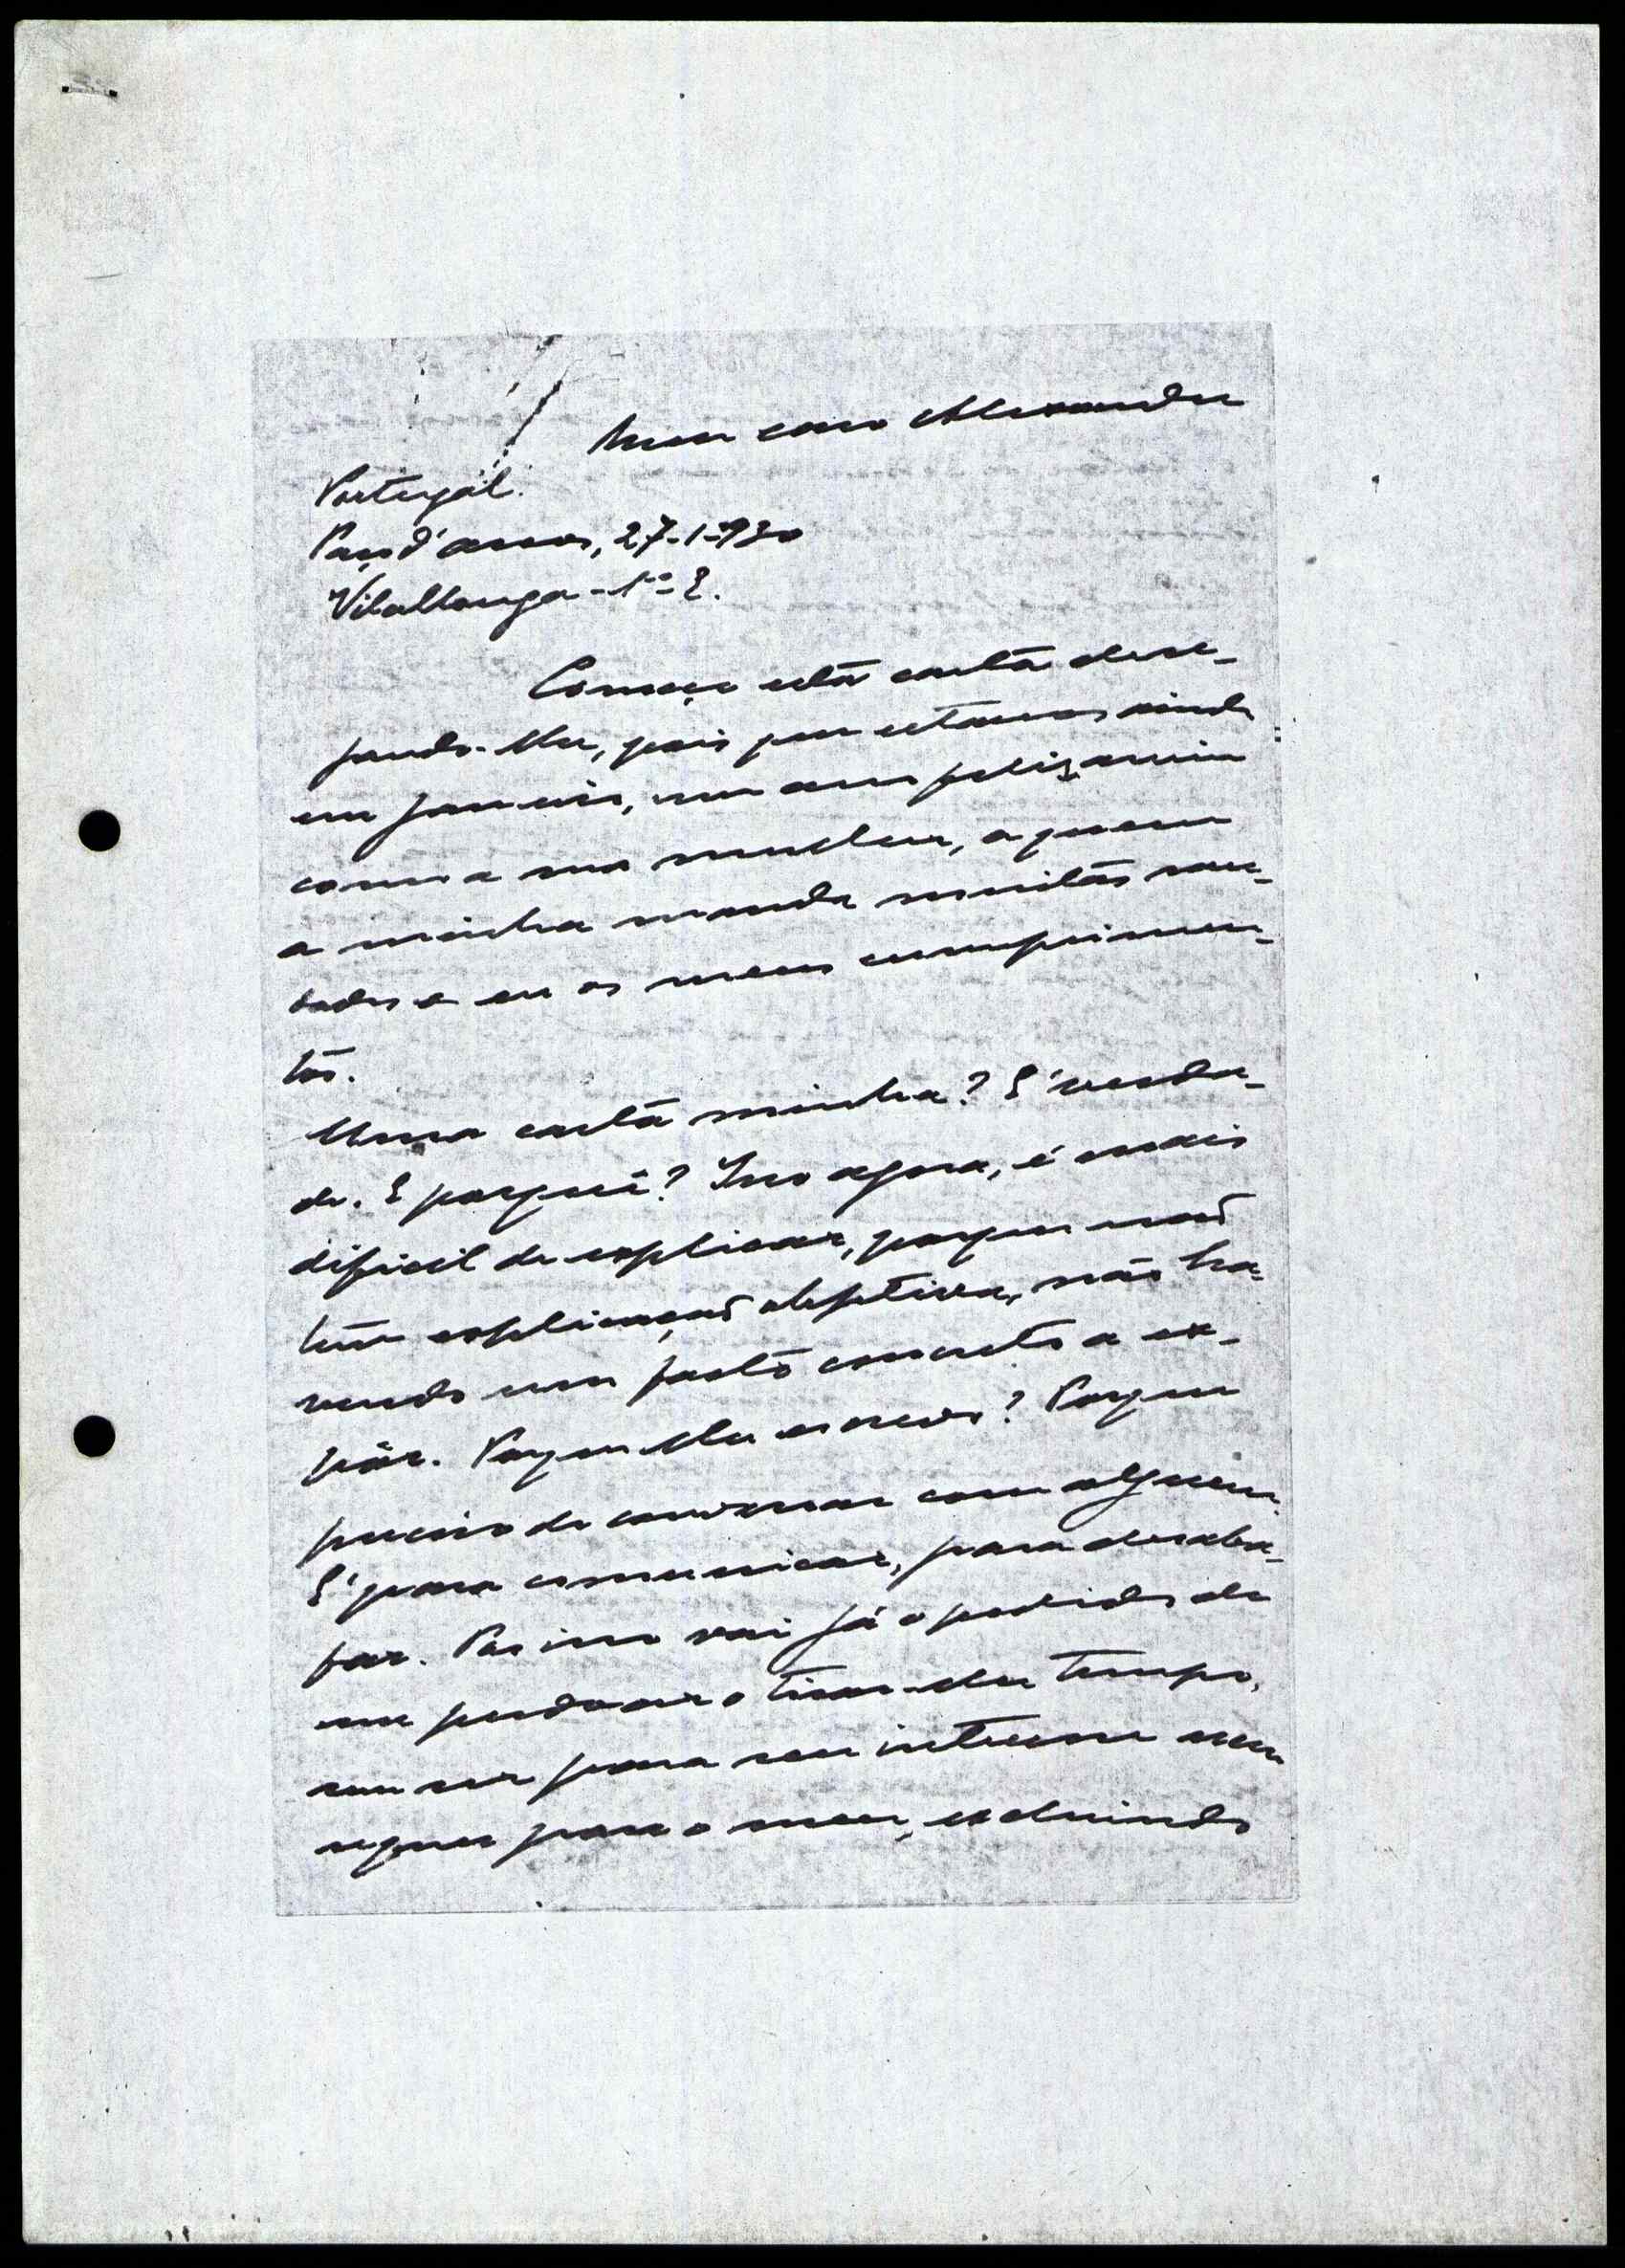 Meu caro Alexandre
Portugal.
Paço d'arcos, 27-1-930
Vila Longa - 1º E.
Começo esta carta dese-
jando-lhe, pois que estamos ainda
em janeiro, um ano feliz, assim
como a sua mulher, a quem
a minha manda muitas sau-
dades e eu os meus cumprimen-
tos.
Uma carta minha? E' verda-
de. E porquê? Isso agora, é mais
dificil de explicar, porque não
tem explicação objetiva, não ha-
vendo um facto concreto a ex-
pôr. Porque lhe escrevo? Porque
preciso de conversar com alguem.
E' para comunicar, para desaba-
far. Por isso vai já o pedido de
me perdoar o tirar-lhe tempo,
sem ser para seu interesse nem
sequer para o meu, excluindo